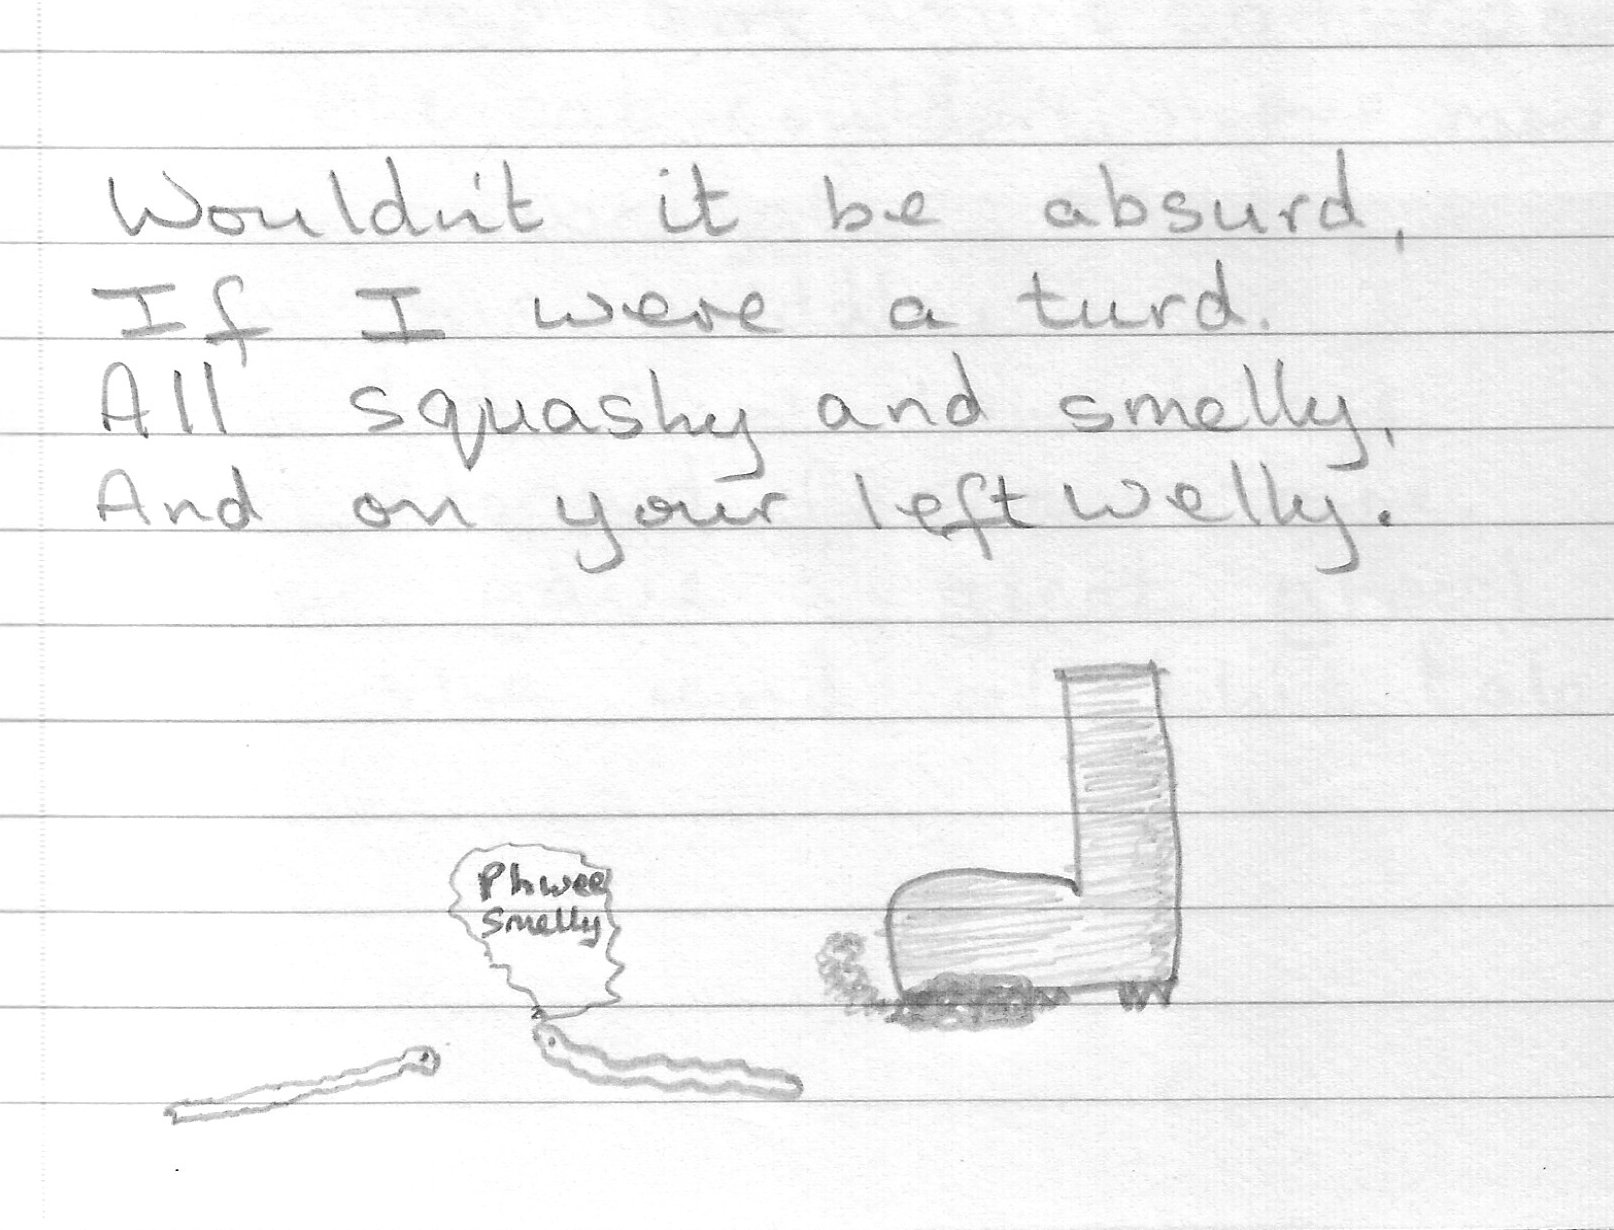 Wouldn't it be absurd,
If I were a turd.
All squashy and smelly,
And on your left welly.
Phwee
Smelly